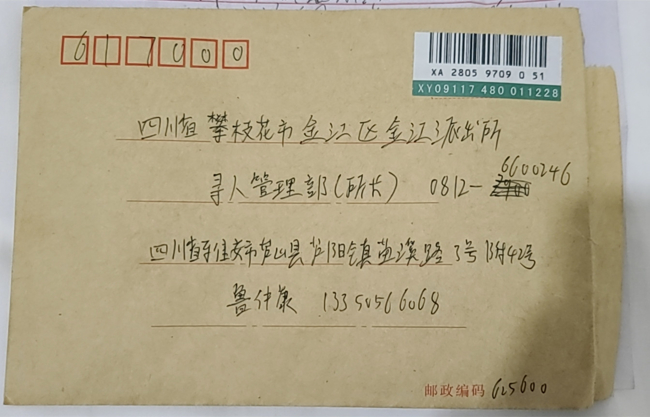 617000
XA 2805 9709 0 51
XY09117 480 011228
四川省攀枝花市金江区金江派出所
6600246
寻人管理部(所长) 0812-
四川省雅安市芦山县芦阳镇 路 号附42号
鲁仲康 13350566068
邮政编码 625600